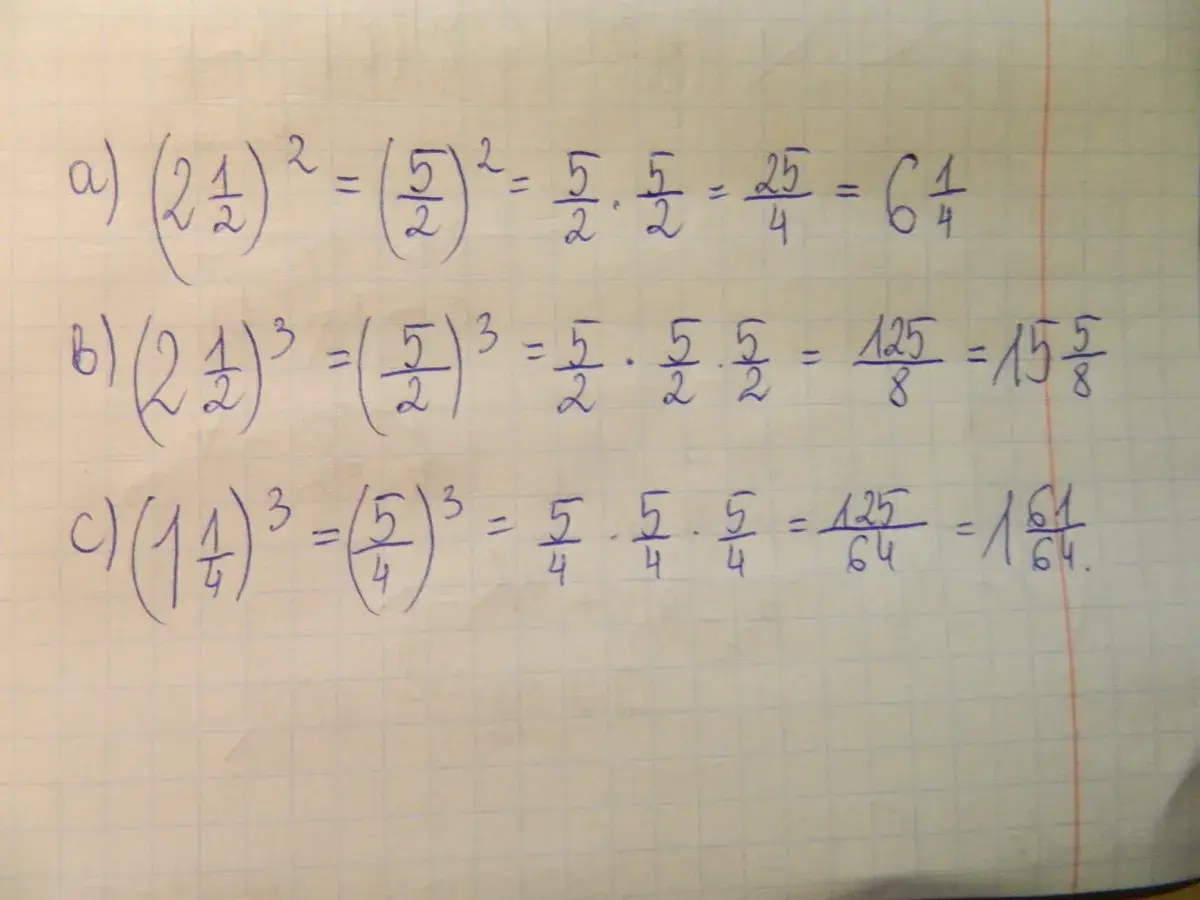 a) (2 1/2)² = (5/2)² = 5/2 · 5/2 = 25/4 = 6 1/4
b) (2 1/2)³ = (5/2)³ = 5/2 · 5/2 · 5/2 = 125/8 = 15 5/8
c) (1 1/4)³ = (5/4)³ = 5/4 · 5/4 · 5/4 = 125/64 = 1 61/64.